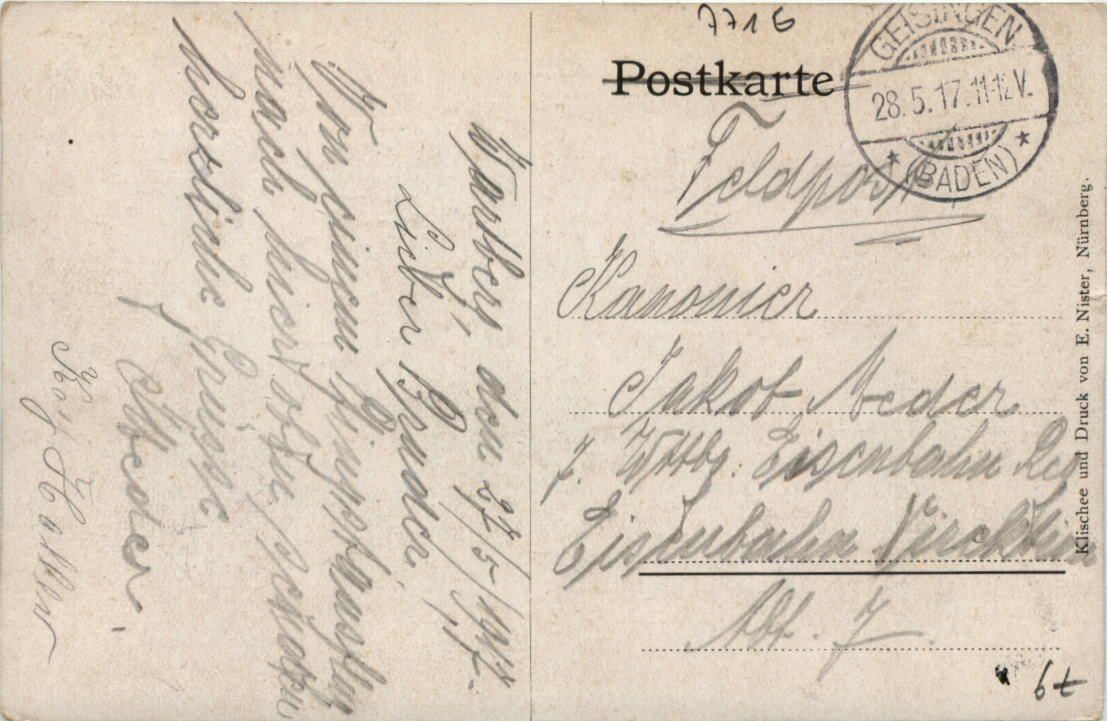 7716
Postkarte
GEISINGEN
28.5.17.11-12V.
* (BADEN) *
Feldpost
Kanonier
Jakob Meder
7. Wttbg. Eisenbahn
Eisenbahn
Abt. 7.
Klischee und Druck von E. Nister, Nürnberg.
6
Wartberg, den 27/5/1917.
Lieber Bruder,
Von einem Pfingstausflug
nach hier Dir, senden
herzliche Grüsse
Meder